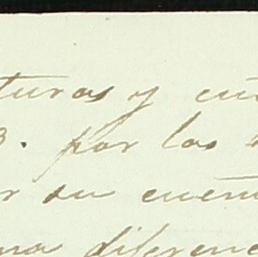 turas y
3. por los
r su cuen
na diferenc